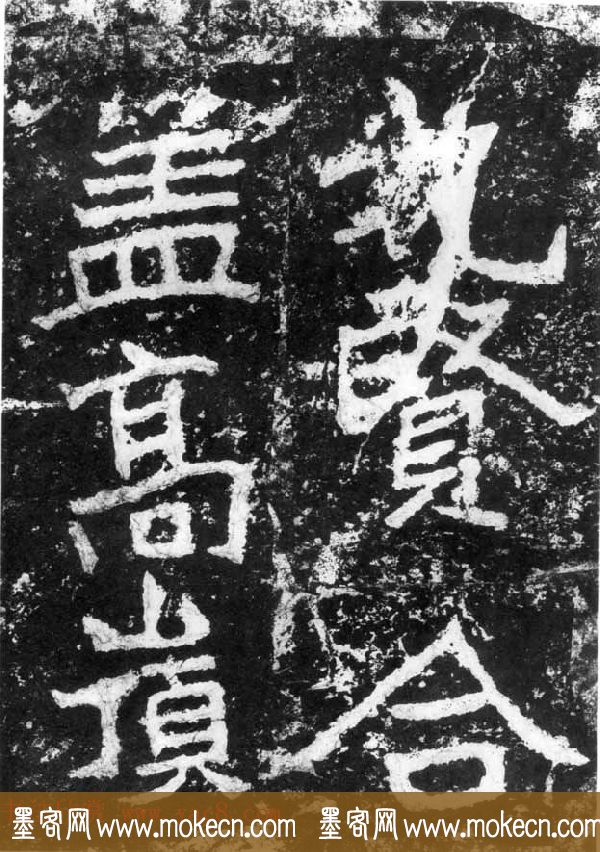 賢合
盖高嵿
墨客网 www.mokecn.com 墨客网 www.mokecn.com